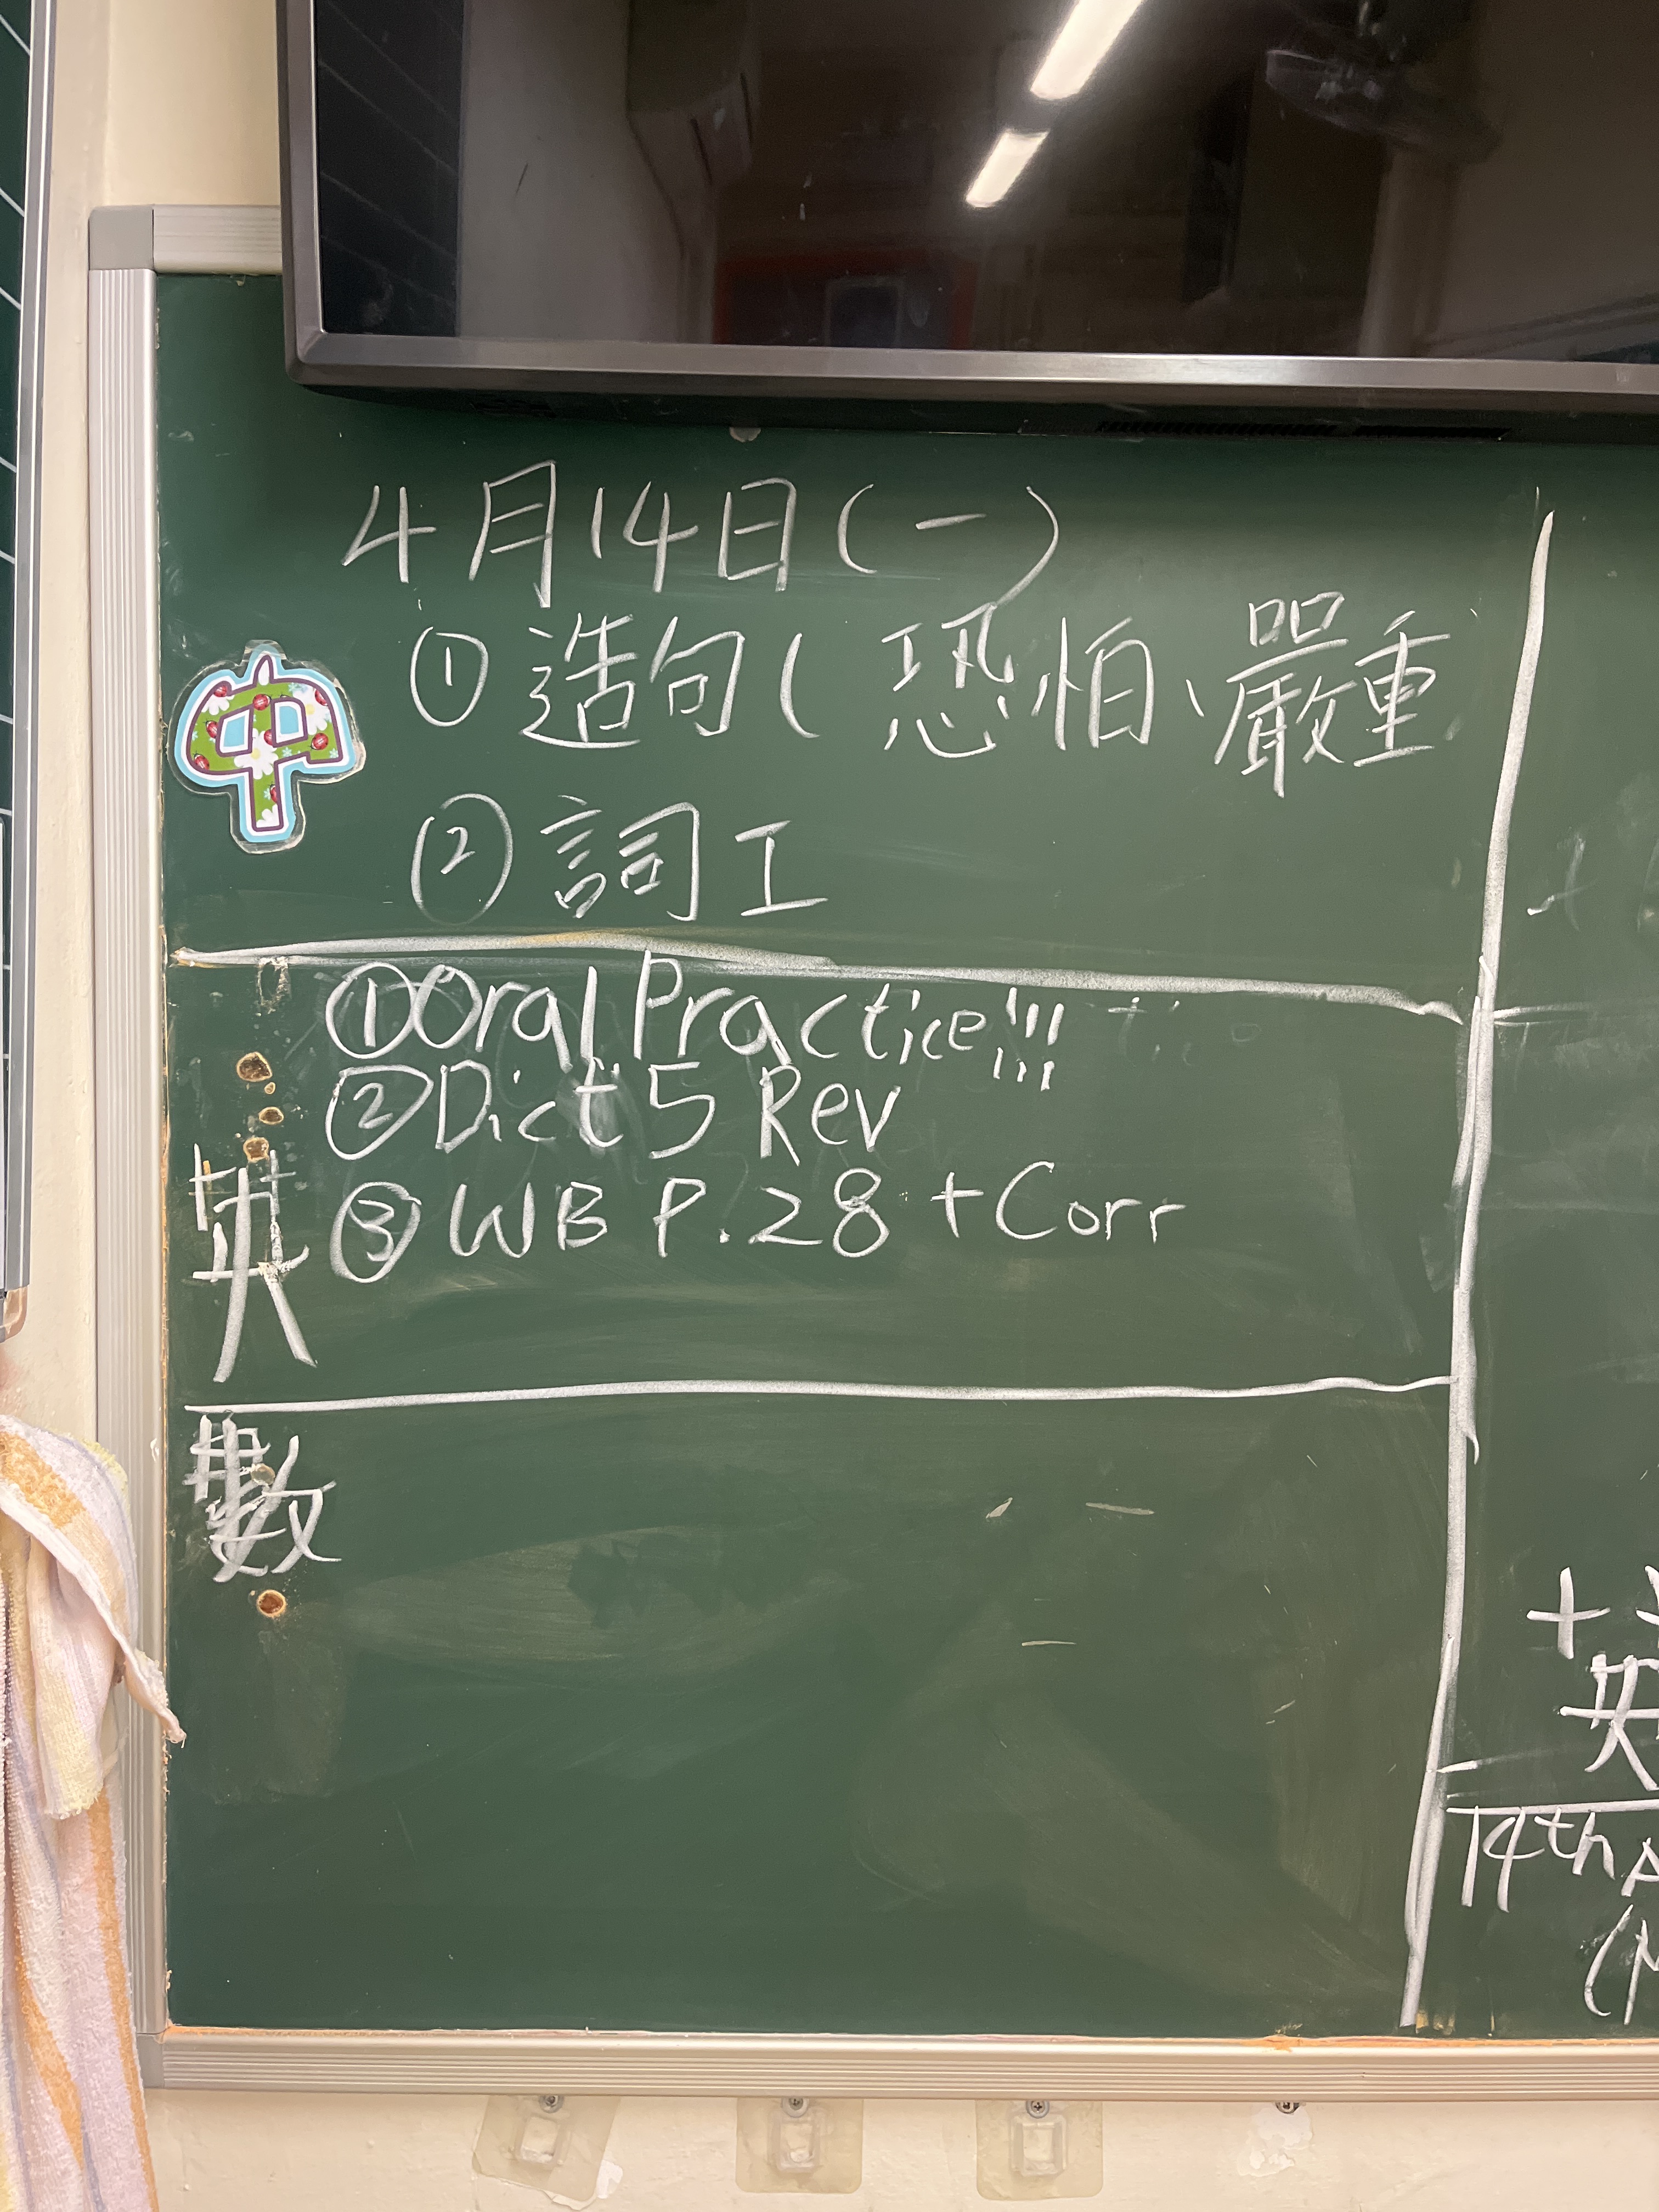 4月14日(一)
中
①造句(恐怕、嚴重
②詞工
①Oral Practice!!!
②Dict 5 Rev
英
③WB P.28 +Corr
數
+
英
14th A
(M